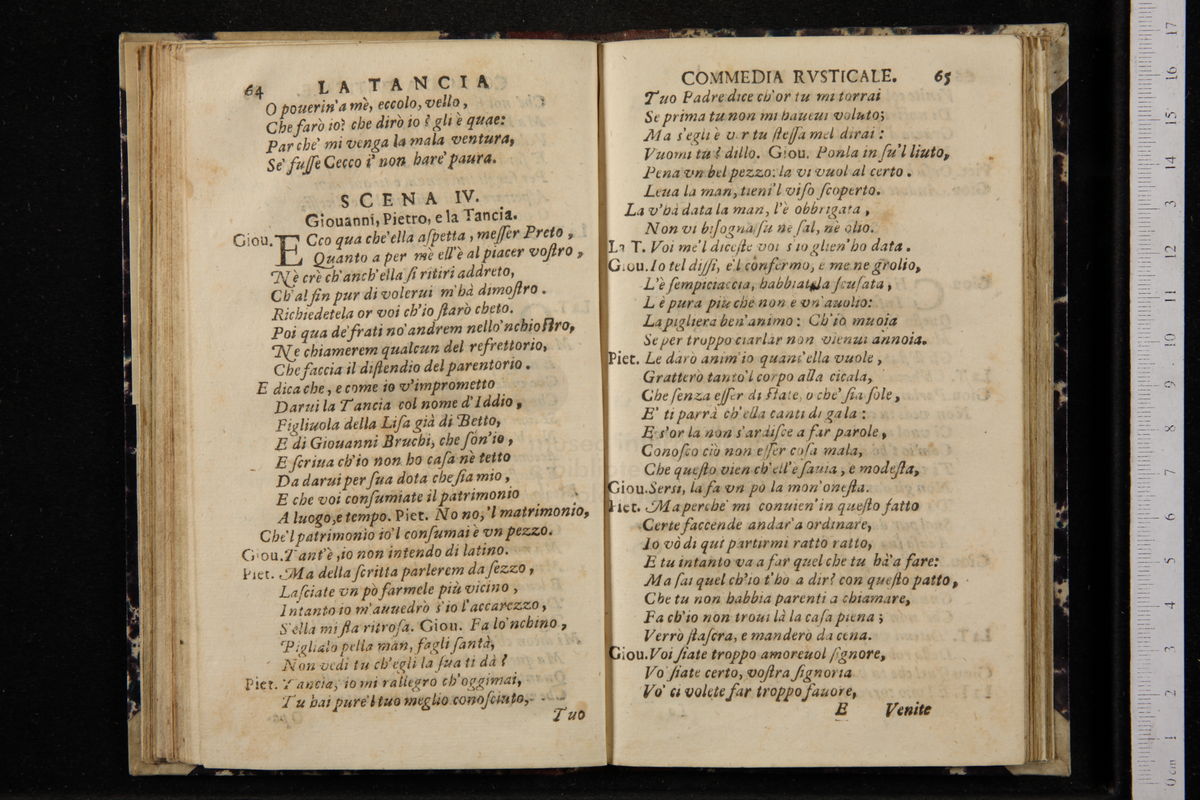 64 LA TANCIA
O pouerin'a mè, eccolo, vello,
Che farò io? che dirò io? gli è quae:
Par che' mi venga la mala ventura,
Se' fusse Cecco i' non hare' paura.
SCENA IV.
Giouanni, Pietro, e la Tancia.
Giou. ECco qua che'ella aspetta, messer Preto,
Quanto a per me ell'è al piacer vostro,
Nè crè ch'anch'ella si ritiri addreto,
Ch'al fin pur di volerui m'hà dimostro.
Richiedetela or voi ch'io starò cheto.
Poi qua de' frati no' andrem nello'nchiostro,
Ne chiamerem qualcun del refrettorio,
Che faccia il distendio del parentorio.
E dica che, e come io v'imprometto
Darui la Tancia col nome d'Iddio,
Figliuola della Lisa già di Betto,
E di Giouanni Bruchi, che son'io,
E scriua ch'io non ho casa nè tetto
Da darui per sua dota che sia mio,
E che voi consumiate il patrimonio
A luogo, e tempo. Piet. No no, 'l matrimonio,
Che'l patrimonio io'l consumai è vn pezzo.
Giou. Tant'è, io non intendo di latino.
Piet. Ma della scritta parlerem da sezzo,
Lasciate vn pò farmele più vicino,
Intanto io m'auuedrò s'io l'accarezzo,
S'ella mi sta ritrosa. Giou. Fa lo'nchino,
Piglialo pella man, fagli santà,
Non vedi tu ch'egli la sua ti dà?
Piet. Tancia, io mi rallegro ch'oggimai,
Tu hai pure'l tuo meglio conosciuto,
Tuo
COMMEDIA RVSTICALE. 65
Tuo Padre dice ch'or tu mi torrai
Se prima tu non mi haueui voluto;
Ma s'egli è v r tu stessa mel dirai:
Vuomi tu? dillo. Giou. Ponla in su'l liuto,
Pena vn bel pezzo: la vi vuol al certo.
Leua la man, tieni'l viso scoperto.
La v'hà data la man, l'è obbrigata,
Non vi bisogna su nè sal, nè olio.
La T. Voi me'l diceste voi s'io glien'ho data.
Giou. Io tel dissi, e'l confermo, e me ne grolio,
L'è sempiciaccia, habbiatela scusata,
L'è pura più che non è vn'auolio:
La piglierà ben'animo: Ch'io muoia
Se per troppo ciarlar non vienui annoia.
Piet. Le darò anim'io quant'ella vuole,
Gratterò tanto'l corpo alla cicala,
Che senza esser di state, o che' sia sole,
E' ti parrà ch'ella canti di gala:
E s'or la non s'ardisce a far parole,
Conosco ciò non esser cosa mala,
Che questo vien ch'ell'è sauia, e modesta,
Giou. Sersi, la fa vn pò la mon'onesta.
Piet. Ma perche' mi conuien'in questo fatto
Certe faccende andar'a ordinare,
Io vò di qui partirmi ratto ratto,
E tu intanto va a far quel che tu hà'a fare:
Ma sai quel ch'io t'hò a dir? con questo patto,
Che tu non habbia parenti a chiamare,
Fa ch'io non troui là la casa piena;
Verrò stasera, e manderò da cena.
Giou. Voi siate troppo amoreuol signore,
Vo' siate certo, vostra signoria
Vo' ci volete far troppo fauore,
E Venite